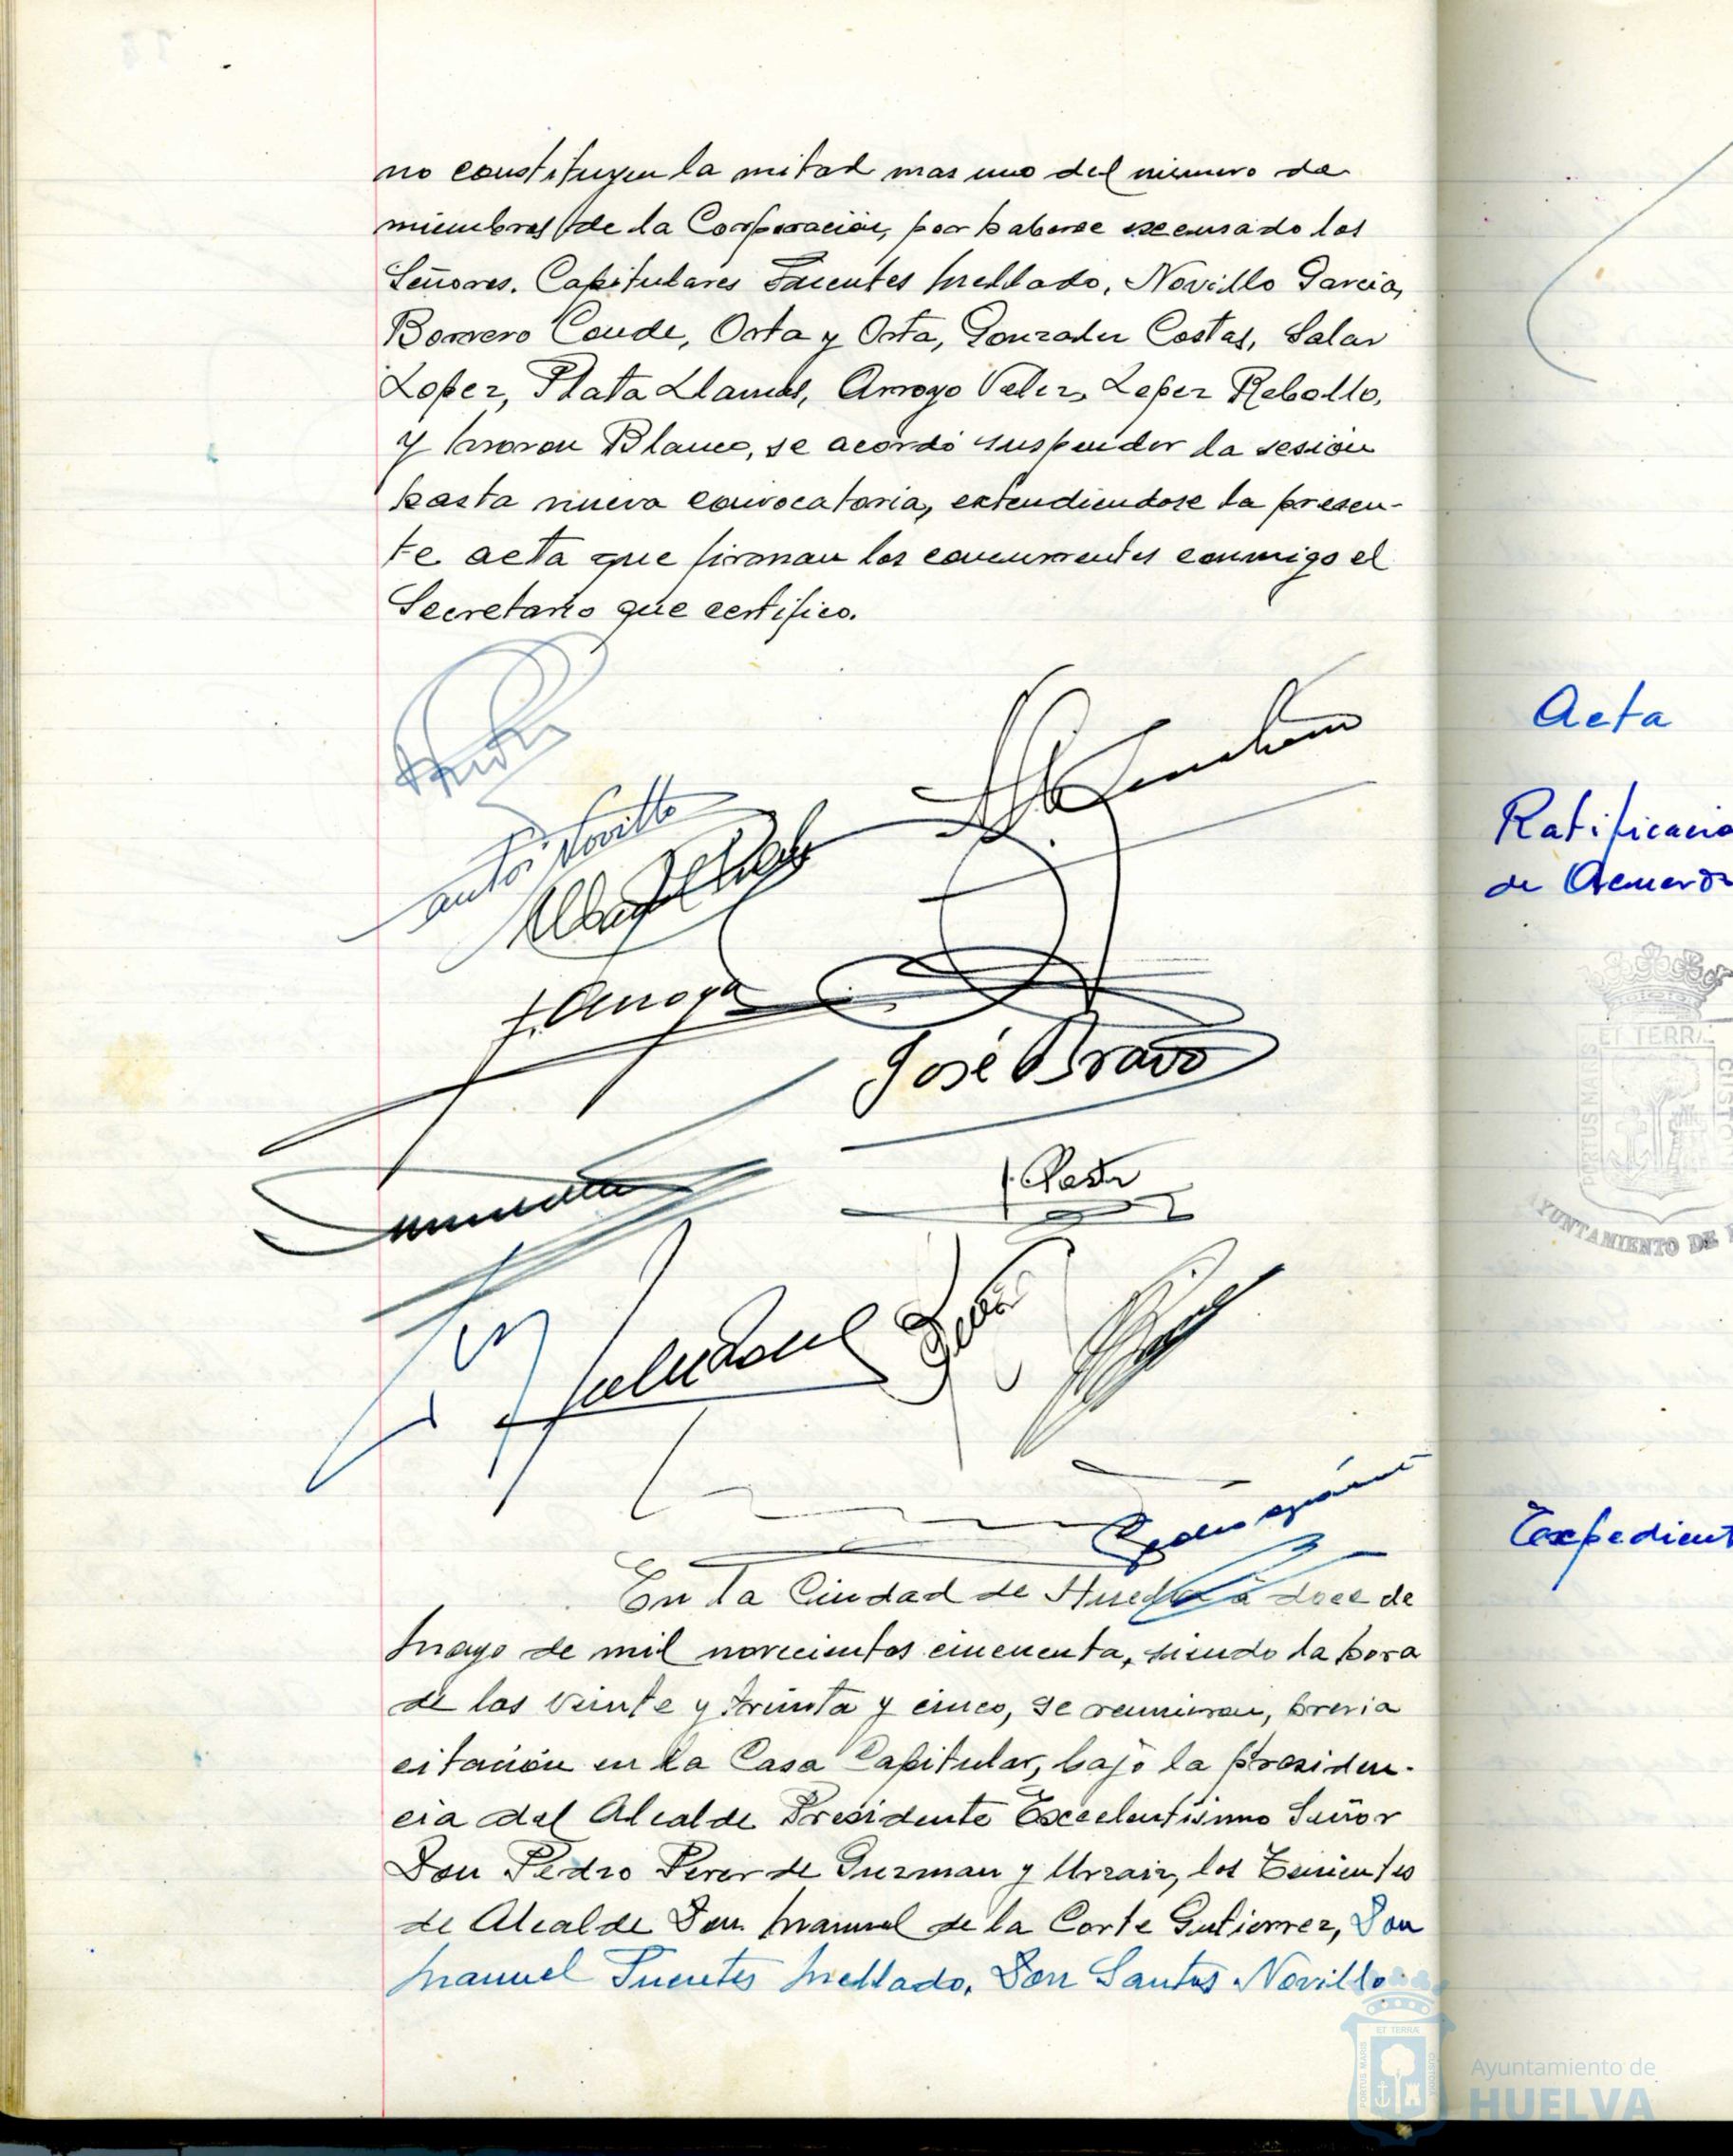 no constituyen la mitad mas uno del número de
miembros de la Corporación, por haberse excusado los
Señores. Capitulares Fuentes Mellado, Novillo García,
Borrero Conde, Orta y Orta, Gonzalez Costas, Salas
Lopez, Plata Llamas, Arroyo Velez, Lopez Rebollo,
y Moron Blanco, se acordó suspender la sesión
hasta nueva convocatoria, extendiendose la presen-
te acta que firman los concurrentes conmigo el
Secretario que certifico.
Santos Novillo
J. Arroyo
José Bravo
En la Ciudad de Huelva a doce de
Mayo de mil novecientos cincuenta, siendo la hora
de las veinte y treinta y cinco, se reunieron, previa
citación en la Casa Capitular, bajo la presiden-
cia del Alcalde Presidente Excelentísimo Señor
Don Pedro Perez de Guzman y Urzaiz, los Tenientes
de Alcalde Don Manuel de la Corte Gutierrez, Don
Manuel Fuentes Mellado, Don Santos Novillo
Acta
Ratificacio
de Acuerdo
ET TERRA
PORTUS MARIS
AYUNTAMIENTO DE
Expedient
ET TERRA
PORTUS MARIS
CUSTODIA
Ayuntamiento de
HUELVA